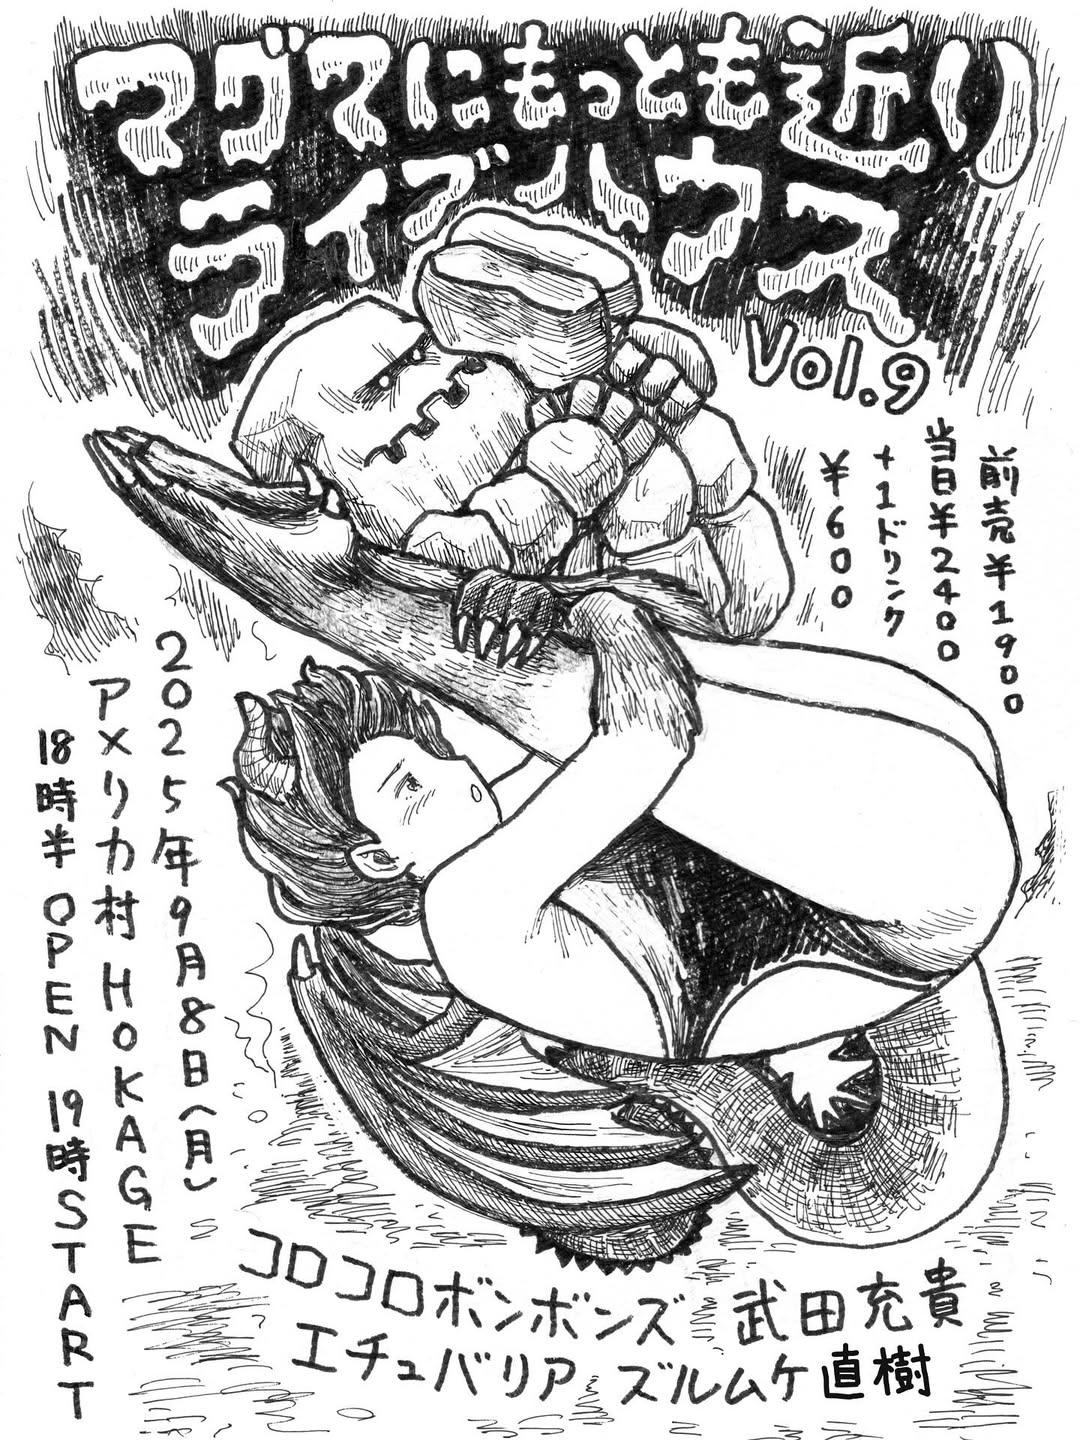 マグマにもっとも近い
ライブハウス
Vol.9
前売¥1900
当日¥2400
+1ドリンク
¥600
2025年9月8日(月)
アメリカ村HOKAGE
18時半OPEN 19時START
コロコロボンボンズ 武田充貴
エチュバリア ズルムケ直樹